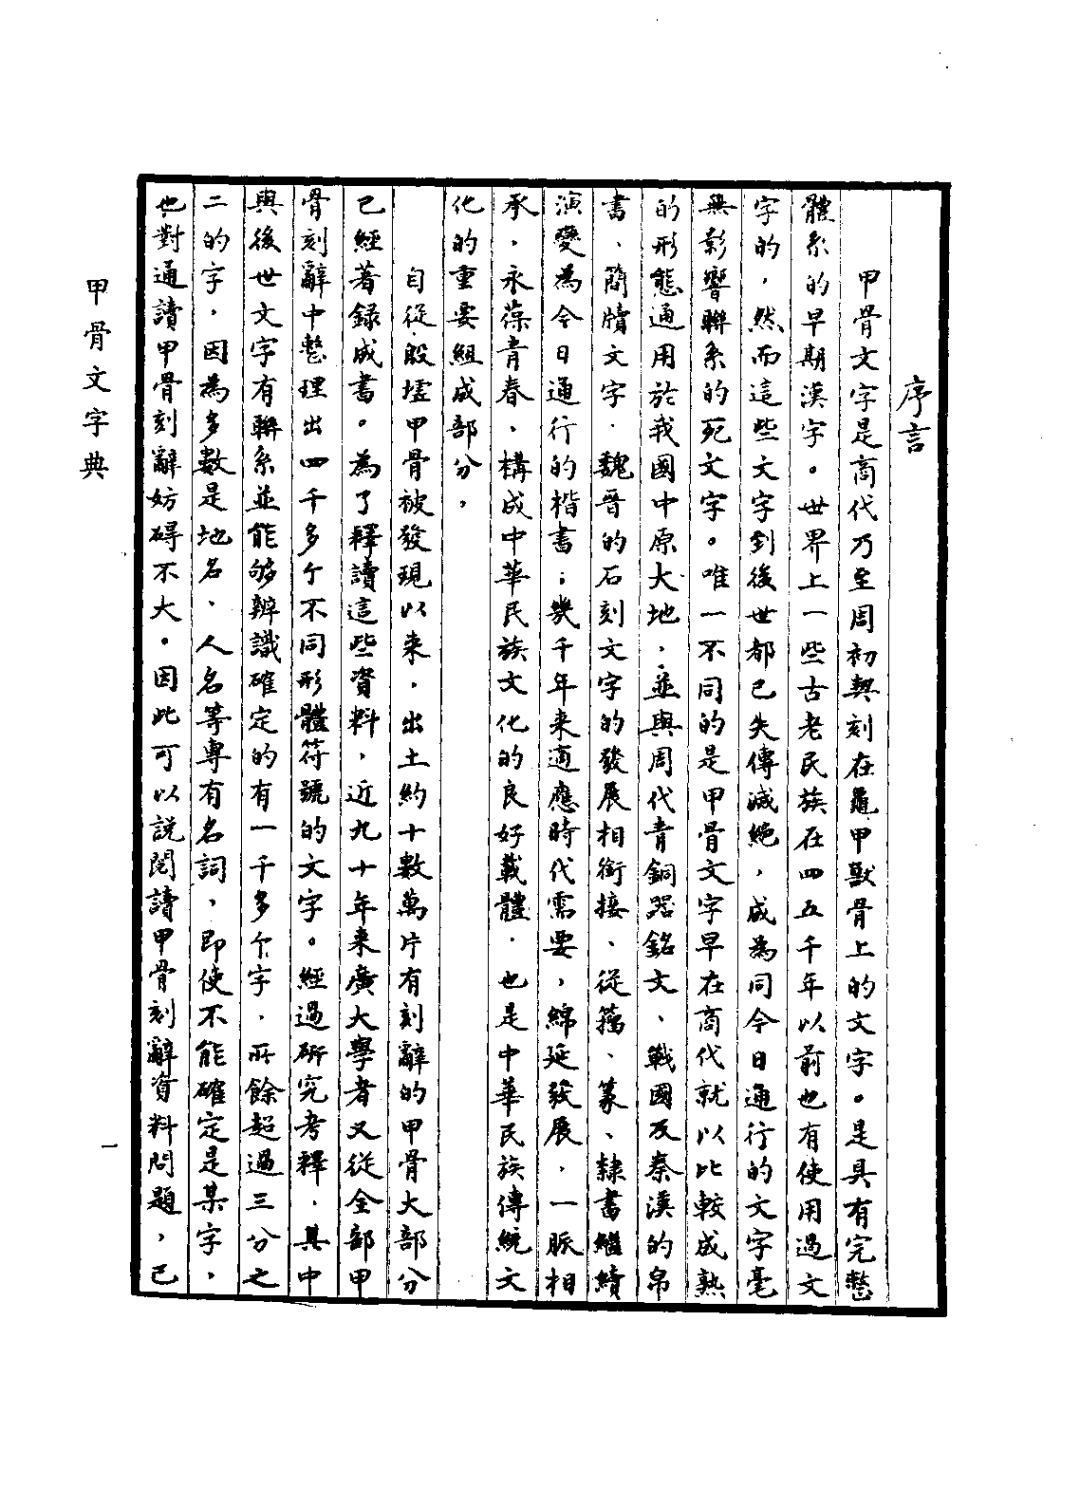 序言
甲骨文字是商代乃至周初契刻在龜甲獸骨上的文字。是具有完整
體系的早期漢字。世界上一些古老民族在四五千年以前也有使用過文
字的，然而這些文字到後世都已失傳滅絕，成為同今日通行的文字毫
無影響聯系的死文字。唯一不同的是甲骨文字早在商代就以比較成熟
的形態通用於我國中原大地，並與周代青銅器銘文、戰國及秦漢的帛
書、簡牘文字，魏晉的石刻文字的發展相銜接、從籀、篆、隸書繼續
演變為今日通行的楷書；幾千年來適應時代需要，綿延發展，一脈相
承，永葆青春，構成中華民族文化的良好載體，也是中華民族傳統文
化的重要組成部分，
自從殷墟甲骨被發現以來，出土約十數萬片有刻辭的甲骨大部分
已經著錄成書。為了釋讀這些資料，近九十年來廣大學者又從全部甲
骨刻辭中整理出四千多个不同形體符號的文字。經過研究考釋，其中
與後世文字有聯系並能够辨識確定的有一千多个字，所餘超過三分之
二的字，因為多數是地名、人名等專有名詞，即使不能確定是某字，
也對通讀甲骨刻辭妨碍不大。因此可以説閲讀甲骨刻辭資料問題，已
甲骨文字典
一